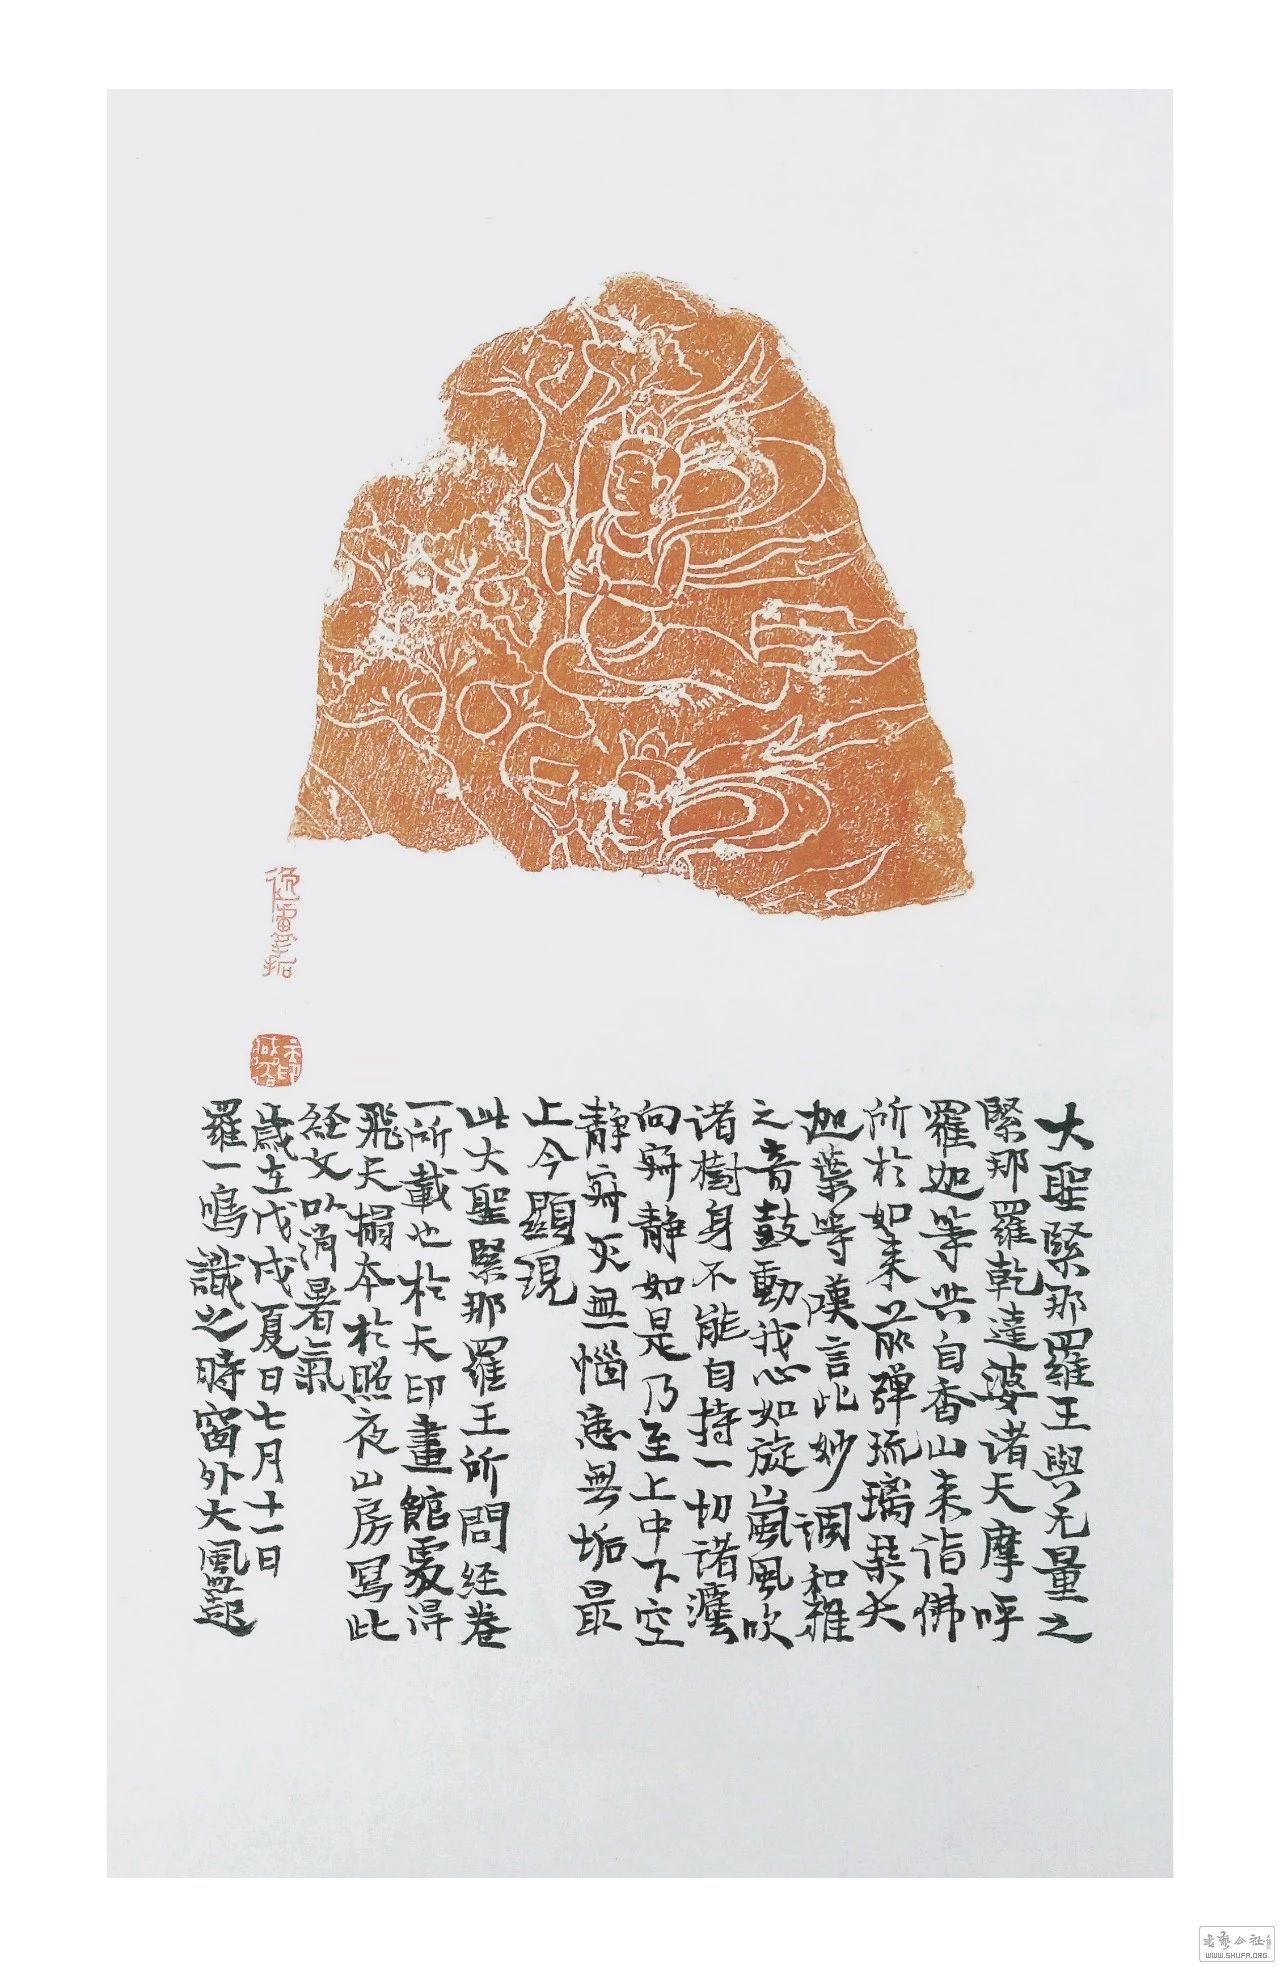 大聖緊那羅王與无量之
緊那羅乾達婆諸天摩呼
羅迦等共自香山来詣佛
所於如来前彈琉璃琴大
迦葉等嘆言此妙調和雅
之音鼓動我心如旋嵐風吹
诸樹身不能自持一切諸法
向寂静如是乃至上中下空
静寂灭無惱患無垢最
上今顯現
此大聖緊那羅王所問经卷
一所載也於天印畫館處得
飛天搨本於照夜山房寫此
经文以消暑氣
歲在戊戌夏日七月十一日
羅一鳴識之時窗外大風起
WWW.SHUFA.ORG